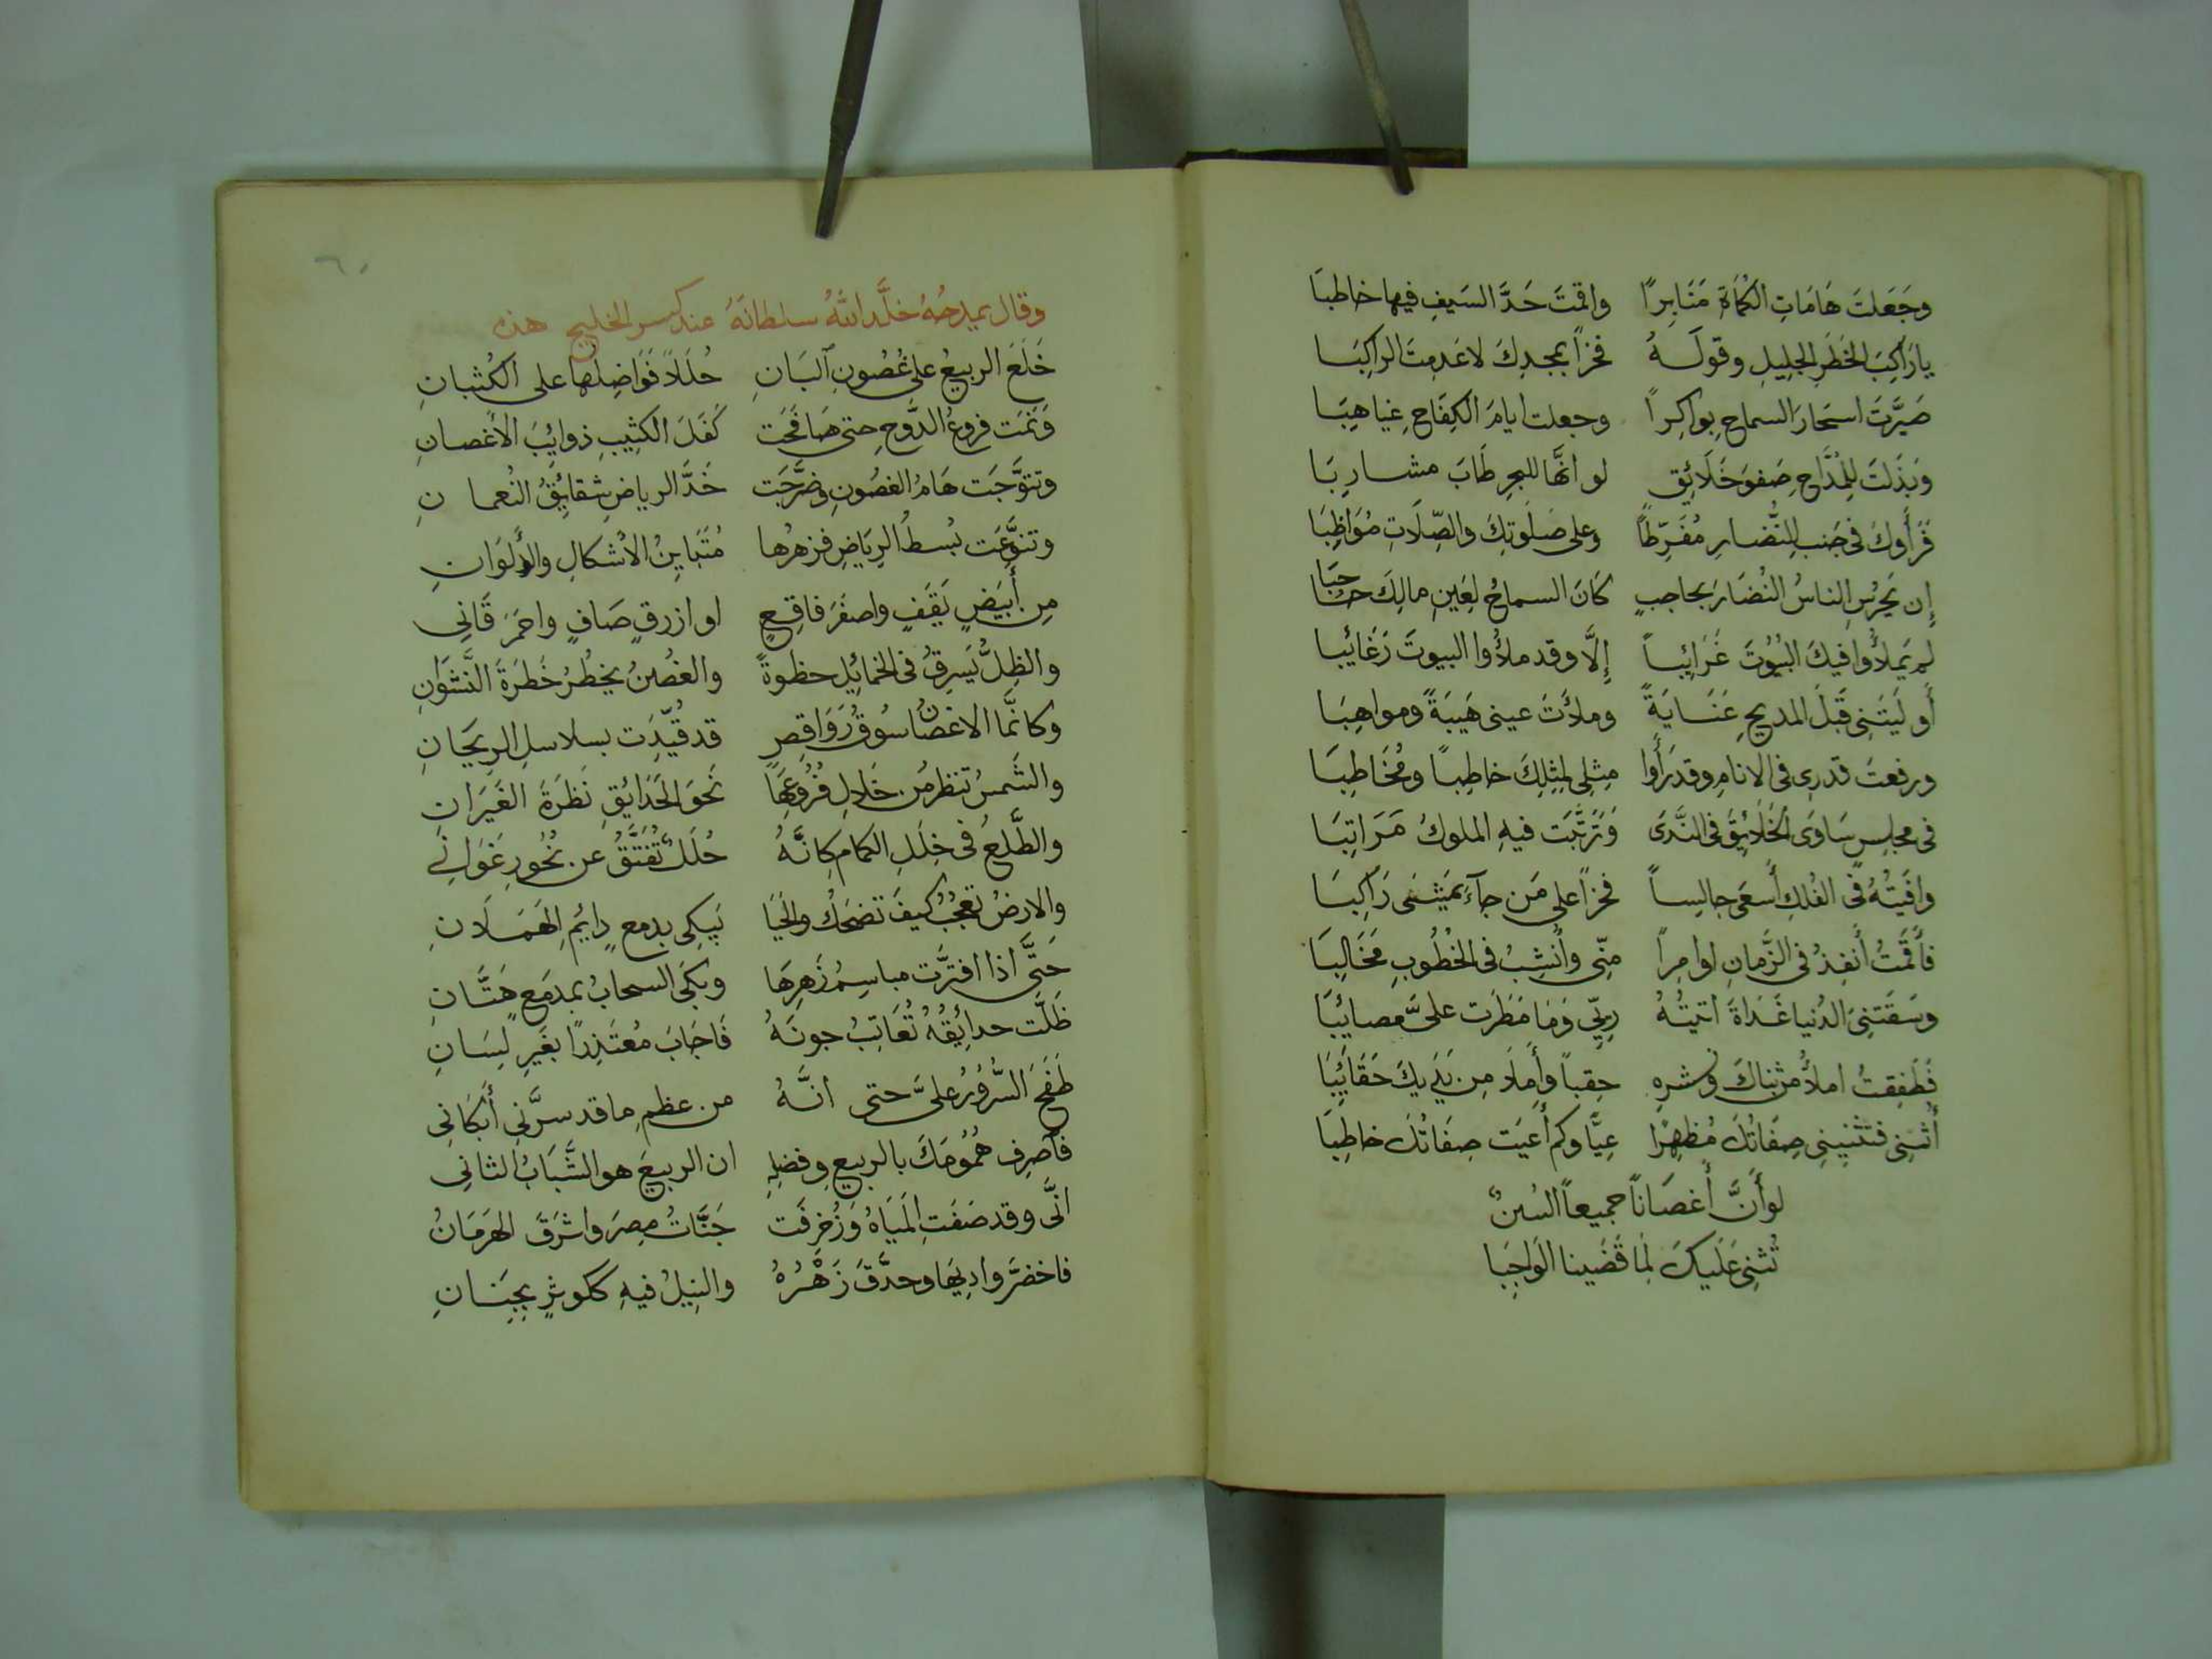 وجَعَلتَ هَامَاتِ الكُمَاةِ مَنَابِراً واقمتَ حَدَّ السَيفِ فيها خاطبَا
يا رَاكِبَ الخَطَرِ الجليلِ وقولَهُ فخراً بمجدِكَ لا عَدِمتَ الراكِبَا
صَيَّرتَ اسحَارَ السماحِ بواكِراً وجعلت ايامَ الكِفَاحِ غياهِبَا
وَبذَلتَ لِلمُدَّاحِ صَفوَ خَلَائِقٍ لو انَّها للبحرِ طَابَ مشارِبَا
فَرَأَوكَ فى جَنبِ النُّضارِ مُفَرِّطاً وعلى صَلَوتِكَ والصِّلَاتِ مُوَاظِبَا
إن يَحرُسِ الناسُ النُضَارَ بحاجبٍ كَانَ السماحُ لِعَينِ مالِكَ حَاجبَا
لم يَملأُوا فيكَ البُيُوتَ غَرَائِباً إِلَّا وقد ملأُوا البيوتَ رَغَائبا
أَوليتَنِى قَبلَ المديحِ عِنَايَةً وملأتَ عينى هَيبَةً ومواهِبَا
ورفعتَ قدرِى فى الانامِ وقد رَأَوا مِثلِى لِمِثلِكَ خاطِباً ومُخَاطِبَا
فى مجلِسٍ سَاوَى الخَلَايِقَ فى النَّدَى وَتَرتَّبَت فيهِ الملوكُ مَرَاتِبَا
وافَيتُهُ فى الفُلكِ أَسعَى جالِساً فخراً على مَن جآءَ يَمشِى رَاكِبَا
فأَقَمتُ أُنفِذُ فى الزَّمانِ اوامِراً مِنّى وأُنشِبُ فى الخُطُوبِ مَخَالِبَا
وسَقَتنِىَ الدُنيا غَدَاةَ اتيتُهُ رِيِّى وَمَا مَطَرَت علىَّ مصايِبَا
فَطَفِقتُ املأُ مِن ثناكَ ونشرِهِ حِقباً وأَملَا مِن يَدَيكَ حَقَايِبَا
أُثنِى فتثنِينِى صِفَاتُكَ مُظهِرًا عِيًّا وكم أَعيَت صِفَاتُكَ خاطِبَا
لو أَنَّ أَغصَانًا جميعاً السُنٌ
تُثنِى عَلَيكَ لَمَا قَضَينا الوَاجِبَا
وقال يمدحُهُ خلَّد اللهُ سلطانَهُ عند كسر الخليج هذه
خَلَعَ الربيعُ على غُصُونِ البَانِ حُلَلاً فَوَاضِلُها على الكُثبانِ
وَنَمَت فروعُ الدَّوحِ حتى صَافَحَت كَفَلَ الكثِيبِ ذوائِبُ الأغصانِ
وتتوَّجَت هَامُ الغصُونِ وضرَّجَت خَدَّ الرياضِ شقايِقُ النُعمانِ
وتنوَّعَت بُسطُ الرِيَاضِ فزهرُها مُتَبَايِنُ الاشكالِ والأَلوَانِ
مِن أَبيَضٍ يَقَقٍ واصفَرَ فاقِعٍ او ازرقٍ صَافٍ واحمَرَ قَانِى
والظِلُّ يَسرِقُ فى الخمائِلِ خطوةً والغُصنُ يخطُرُ خَطرَةَ النَّشوَانِ
وكانَّما الاغصَانُ سُوقُ رَوَاقِصٍ قد قُيِّدَت بسلاسلِ الريحَانِ
والشَمسُ تنظرُ مِن خَلالِ فُرُوعِهَا نَحوَ الحَدَايِقِ نَظرَةَ الغَيرَانِ
والطَّلعُ فى خِلَلِ الكمامِ كانَّهُ حُلَلٌ تُفَتَّقُ عن نُحُورِ غَوَانِى
والارضُ تعجَبُ كيفَ تضحَكُ والحَيَا يَبكِى بدمعٍ دايمِ الهَمَلَانِ
حَتَّى اذا افترَّت مباسِمُ زَهرِهَا وبكَى السحابُ بمدمَعٍ هَتَّانِ
ظَلَّت حدائِقُهُ تُعَاتِبُ جونَهُ فَاجَابَ مُعتَذِرًا بغَيرِ لِسَانِ
طَفَحَ السُّرُورُ علىَّ حتى انَّهُ من عظمِ ما قد سرَّنى أَبكَانِى
فاصرِف هُمُومَكَ بالربيعِ وفضلِهِ ان الربيعَ هو الشَّبَابُ الثانِى
انَّى وقد صَفَتِ المَيَاهُ وَزُخرِفَت جَنَّاتُ مِصرَ واشرَقَ الهَرَمَانُ
فاخضرَّ واديهَا وحدَّقَ زَهْرُهُ والنِيلُ فيهِ ككوثرٍ بجِنَانِ
٦٠